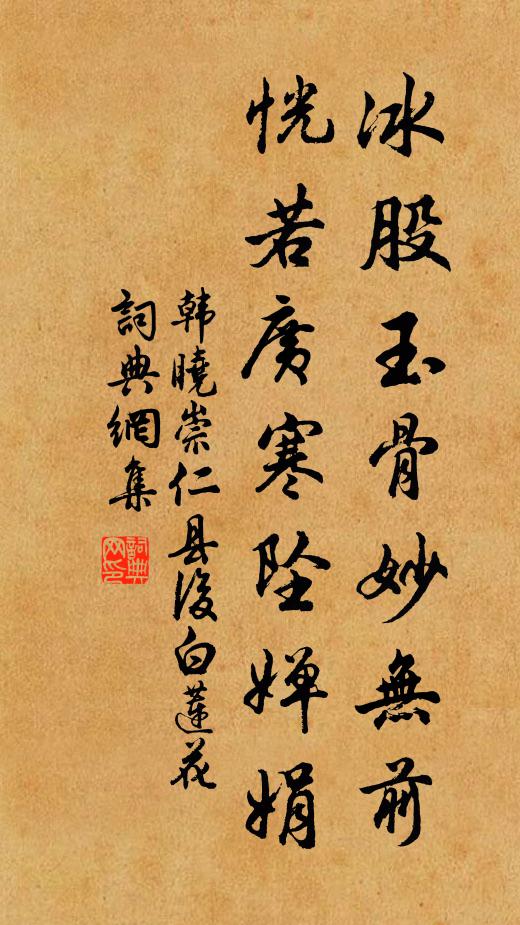 冰股玉骨妙無前
恍若廣寒墜嬋娟
韩曉崇仁县後白蓮花
詞典網集
詞典
网印